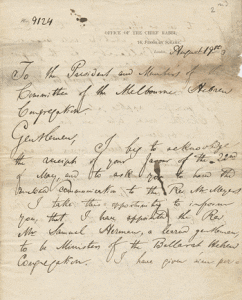 9124
OFFICE OF THE CHIEF RABBI,
August 17th
To the President and Members of
Committee of the Melbourne Hebrew
Congregation
Gentlemen,
I beg to acknowledge
the receipt of your favor of the 22nd
of May, and to ask you to hand the
communication to the Rev. Mr
I take this opportunity to inform
you, that I have appointed the Rev.
Mr Samuel Herman, a learned gentleman,
to be Minister of the Ballarat Hebrew
Congregation. I have given him